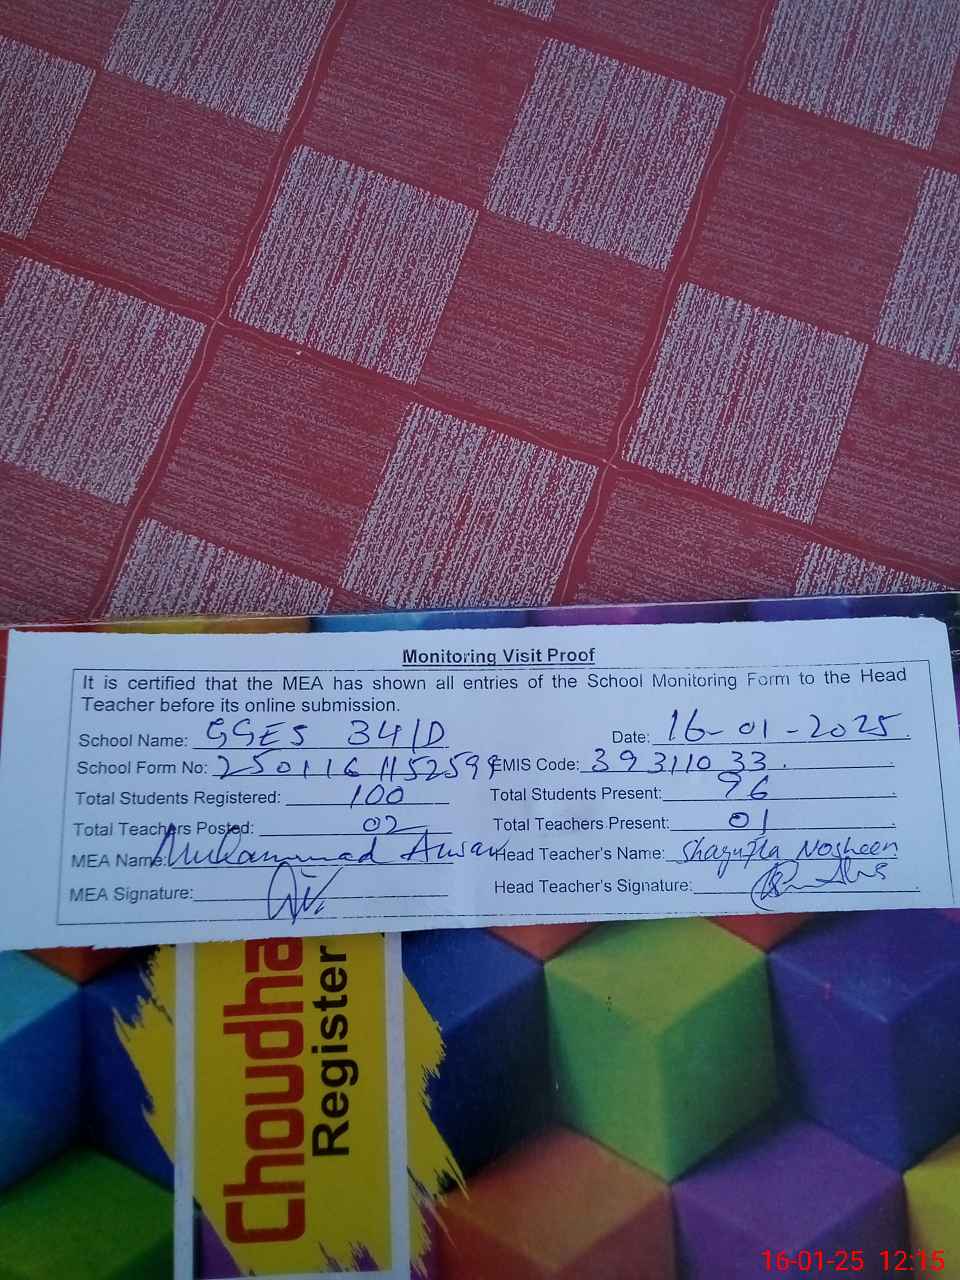 Monitoring Visit Proof
It is certified that the MEA has shown all entries of the School Monitoring Form to the Head
Teacher before its online submission.
School Name: GGES 341D Date: 16-01-2025
School Form No: 250116115259 EMIS Code: 39311033
Total Students Registered: 100 Total Students Present: 96
Total Teachers Posted: 02 Total Teachers Present: 01
MEA Name: Muhammad Head Teacher's Name: Shagufta Nosheen
MEA Signature: Head Teacher's Signature:
Choudha
Register
16-01-25 12:15